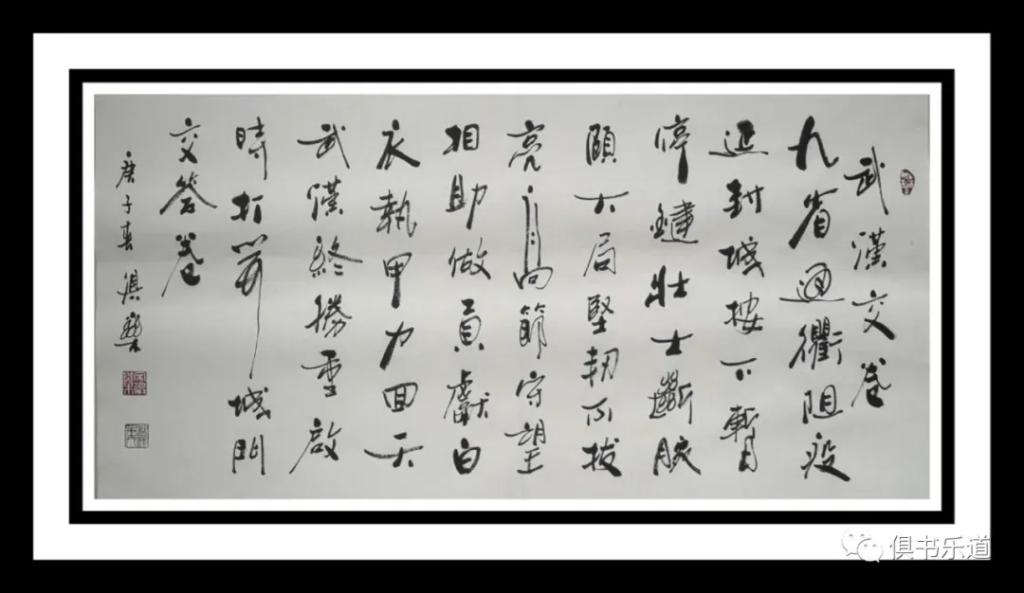 武漢交卷
九省通衢阻疫
迅封城按下暫
停鍵壯士斷腕
顧大局堅韌不拔
亮節守望
相助做貢獻白
衣執甲力回天
武漢終勝重啟
時打開城門
交答卷
庚子春俱樂
俱书乐道